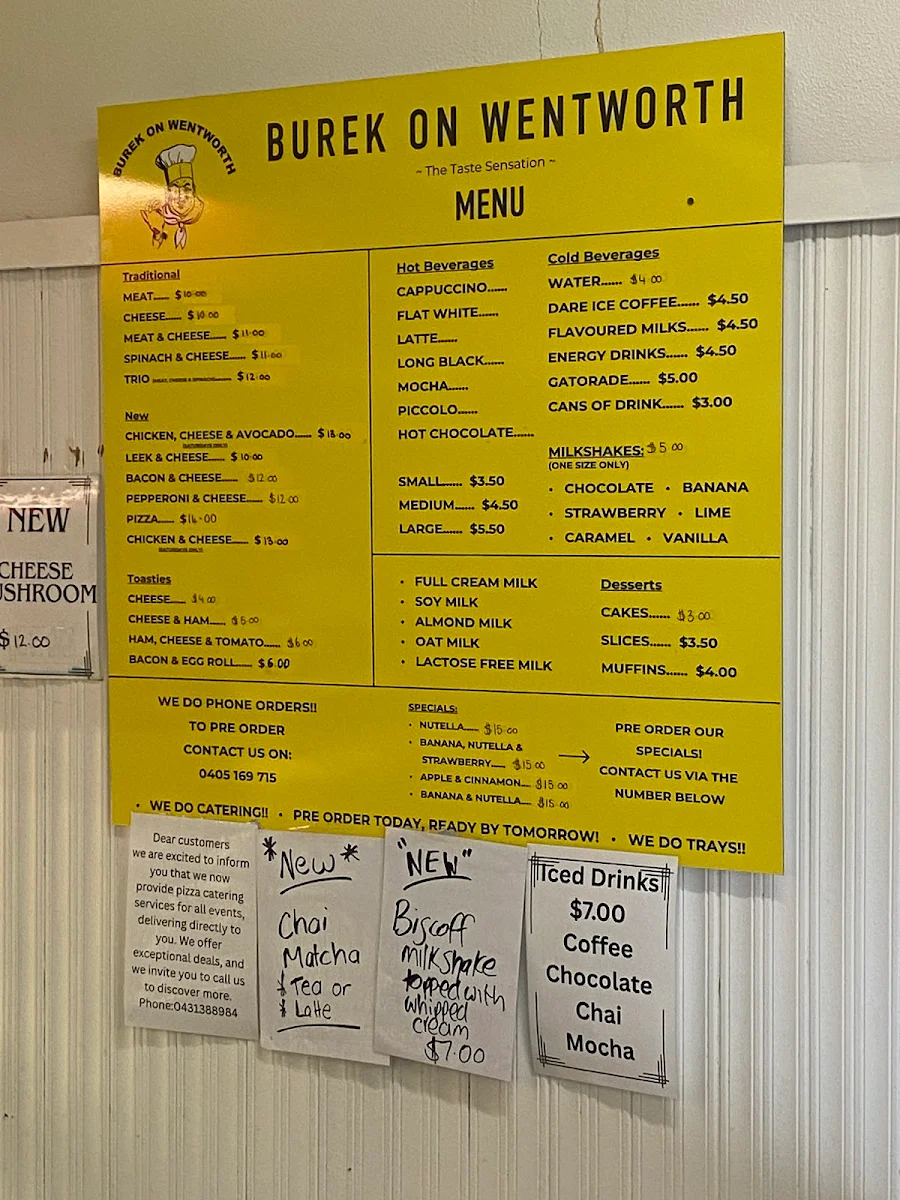 BUREK ON WENTWORTH
BUREK ON WENTWORTH
~ The Taste Sensation ~
MENU
Traditional
MEAT...... $10.00
CHEESE...... $10.00
MEAT & CHEESE...... $11.00
SPINACH & CHEESE...... $11.00
TRIO (MEAT, CHEESE & SPINACH)...... $12.00
New
CHICKEN, CHEESE & AVOCADO...... $13.00
(SATURDAYS ONLY)
LEEK & CHEESE...... $10.00
BACON & CHEESE...... $12.00
PEPPERONI & CHEESE...... $12.00
PIZZA...... $16.00
CHICKEN & CHEESE...... $13.00
(SATURDAYS ONLY)
Toasties
CHEESE...... $4.00
CHEESE & HAM...... $5.00
HAM, CHEESE & TOMATO...... $6.00
BACON & EGG ROLL...... $6.00
Hot Beverages
CAPPUCCINO......
FLAT WHITE......
LATTE......
LONG BLACK......
MOCHA......
PICCOLO......
HOT CHOCOLATE......
SMALL...... $3.50
MEDIUM...... $4.50
LARGE...... $5.50
Cold Beverages
WATER...... $4.00
DARE ICE COFFEE...... $4.50
FLAVOURED MILKS...... $4.50
ENERGY DRINKS...... $4.50
GATORADE...... $5.00
CANS OF DRINK...... $3.00
MILKSHAKES: $5.00
(ONE SIZE ONLY)
• CHOCOLATE • BANANA
• STRAWBERRY • LIME
• CARAMEL • VANILLA
• FULL CREAM MILK
• SOY MILK
• ALMOND MILK
• OAT MILK
• LACTOSE FREE MILK
Desserts
CAKES...... $3.00
SLICES...... $3.50
MUFFINS...... $4.00
WE DO PHONE ORDERS!!
TO PRE ORDER
CONTACT US ON:
0405 169 715
SPECIALS:
• NUTELLA...... $15.00
• BANANA, NUTELLA &
STRAWBERRY...... $15.00
• APPLE & CINNAMON.... $15.00
• BANANA & NUTELLA.... $15.00
PRE ORDER OUR
SPECIALS!
CONTACT US VIA THE
NUMBER BELOW
• WE DO CATERING!! • PRE ORDER TODAY, READY BY TOMORROW! • WE DO TRAYS!!
NEW
CHEESE
$12.00
Dear customers
we are excited to inform
you that we now
provide pizza catering
services for all events,
delivering directly to
you. We offer
exceptional deals, and
we invite you to call us
to discover more.
Phone:0431388984
*New*
Chai
Matcha
* Tea or
* Latte
"NEW"
Biscoff
milkshake
topped with
whipped
cream
$7.00
Iced Drinks
$7.00
Coffee
Chocolate
Chai
Mocha